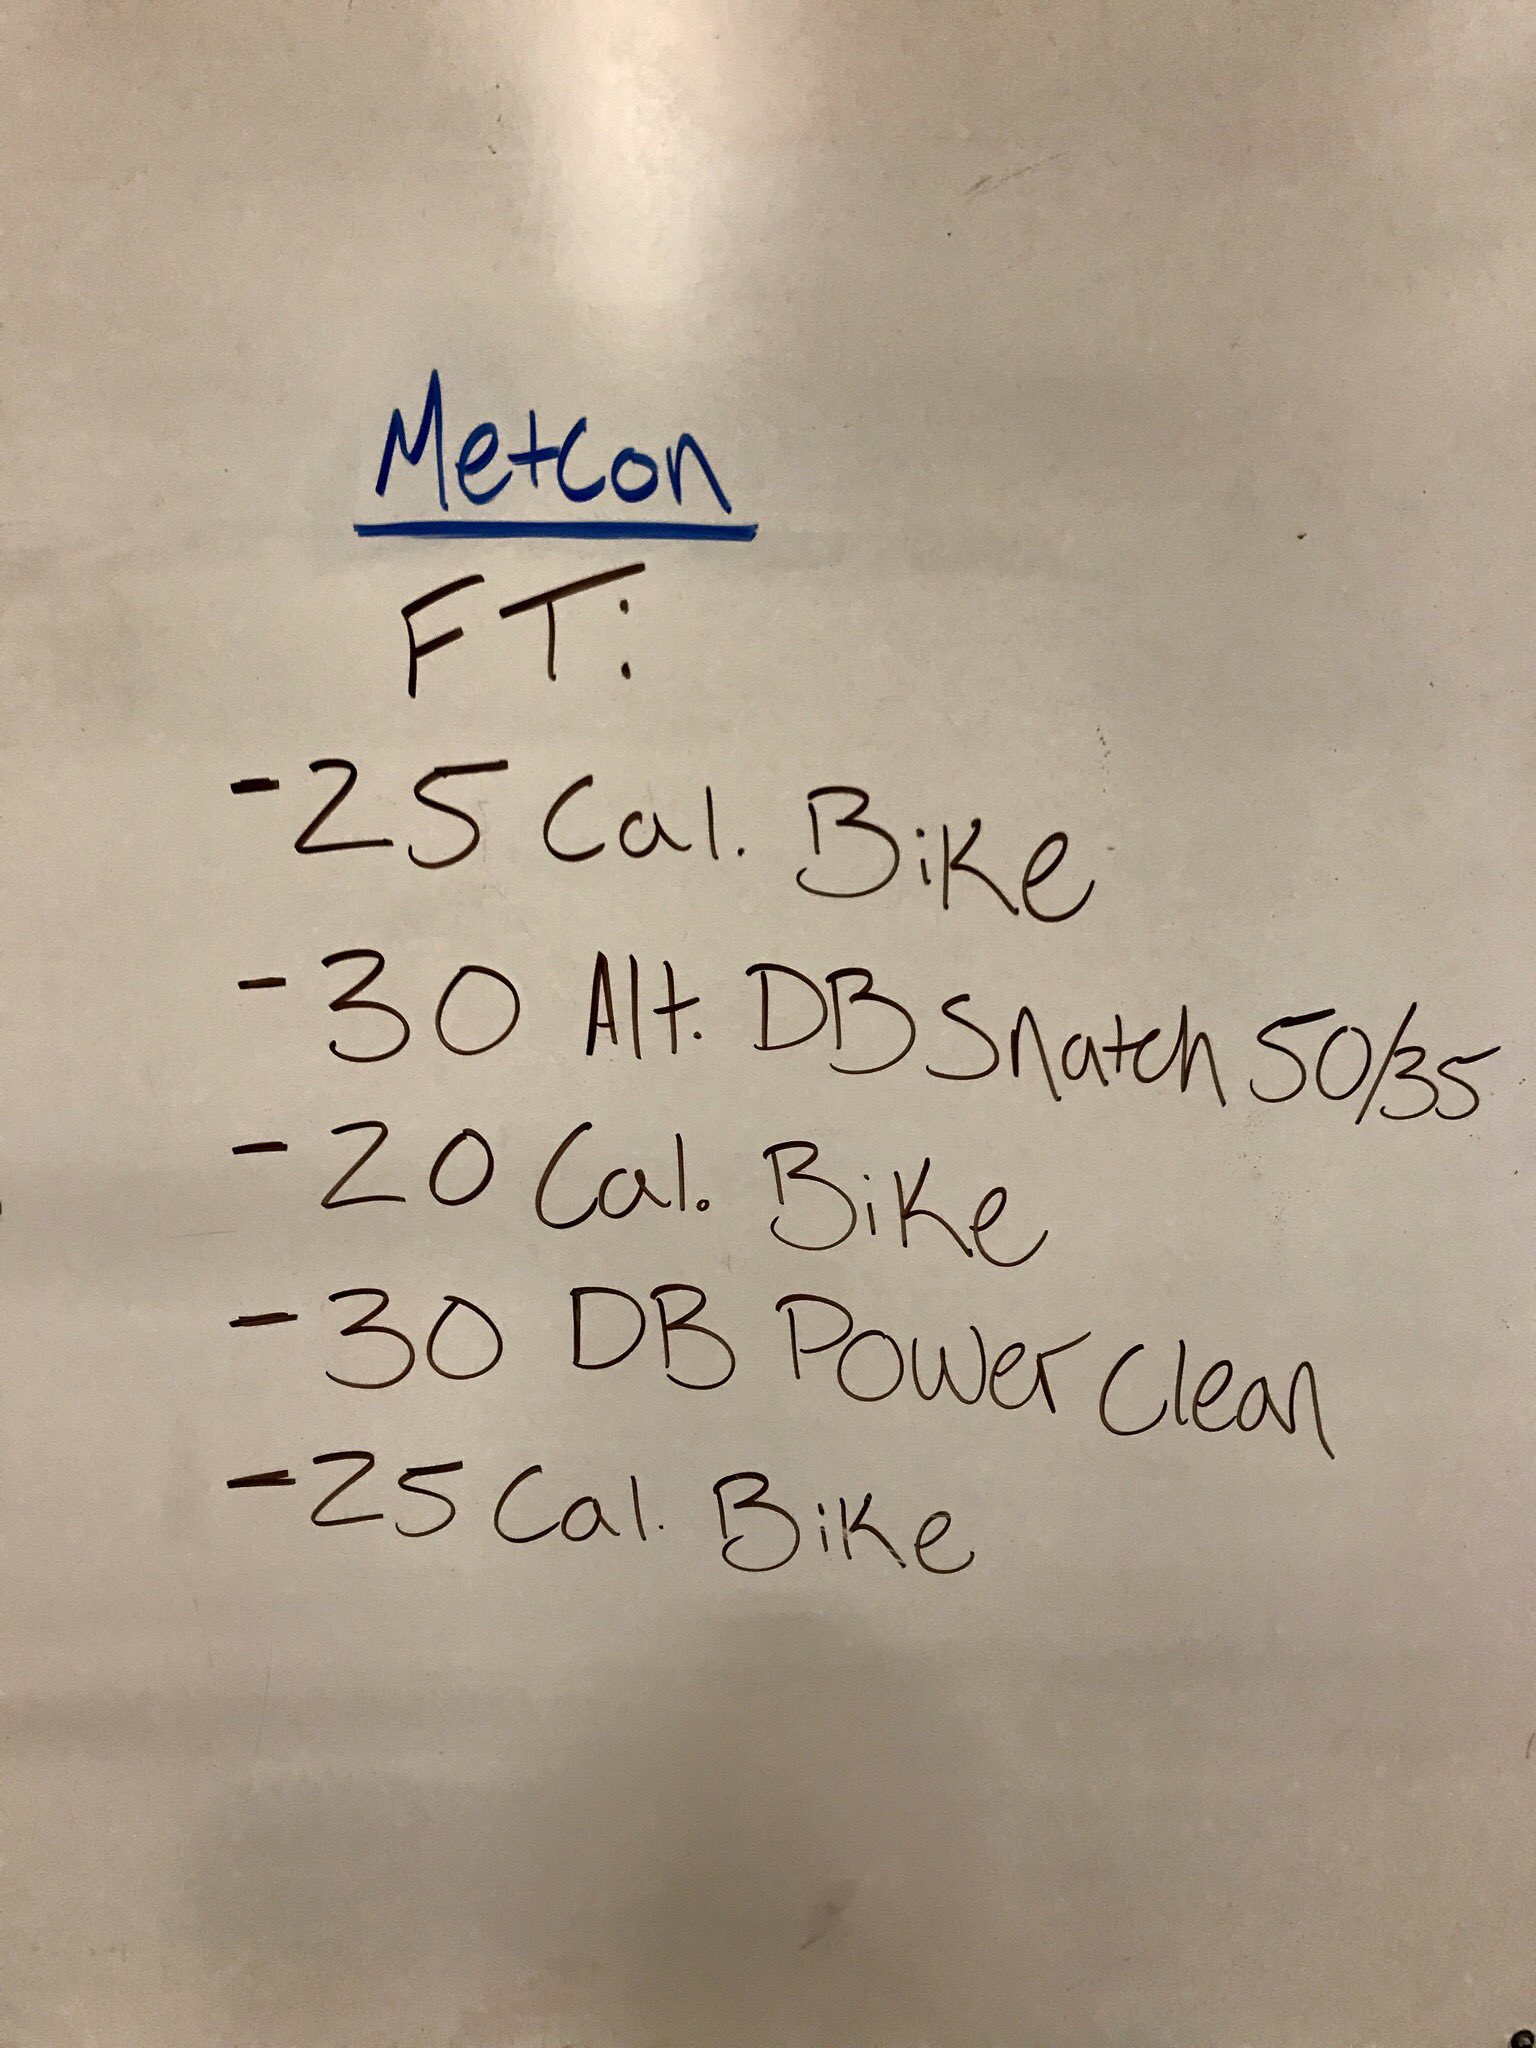 Metcon
FT:
- 25 Cal. Bike
- 30 Alt. DB Snatch 50/35
- 20 Cal. Bike
- 30 DB Power Clean
- 25 Cal. Bike